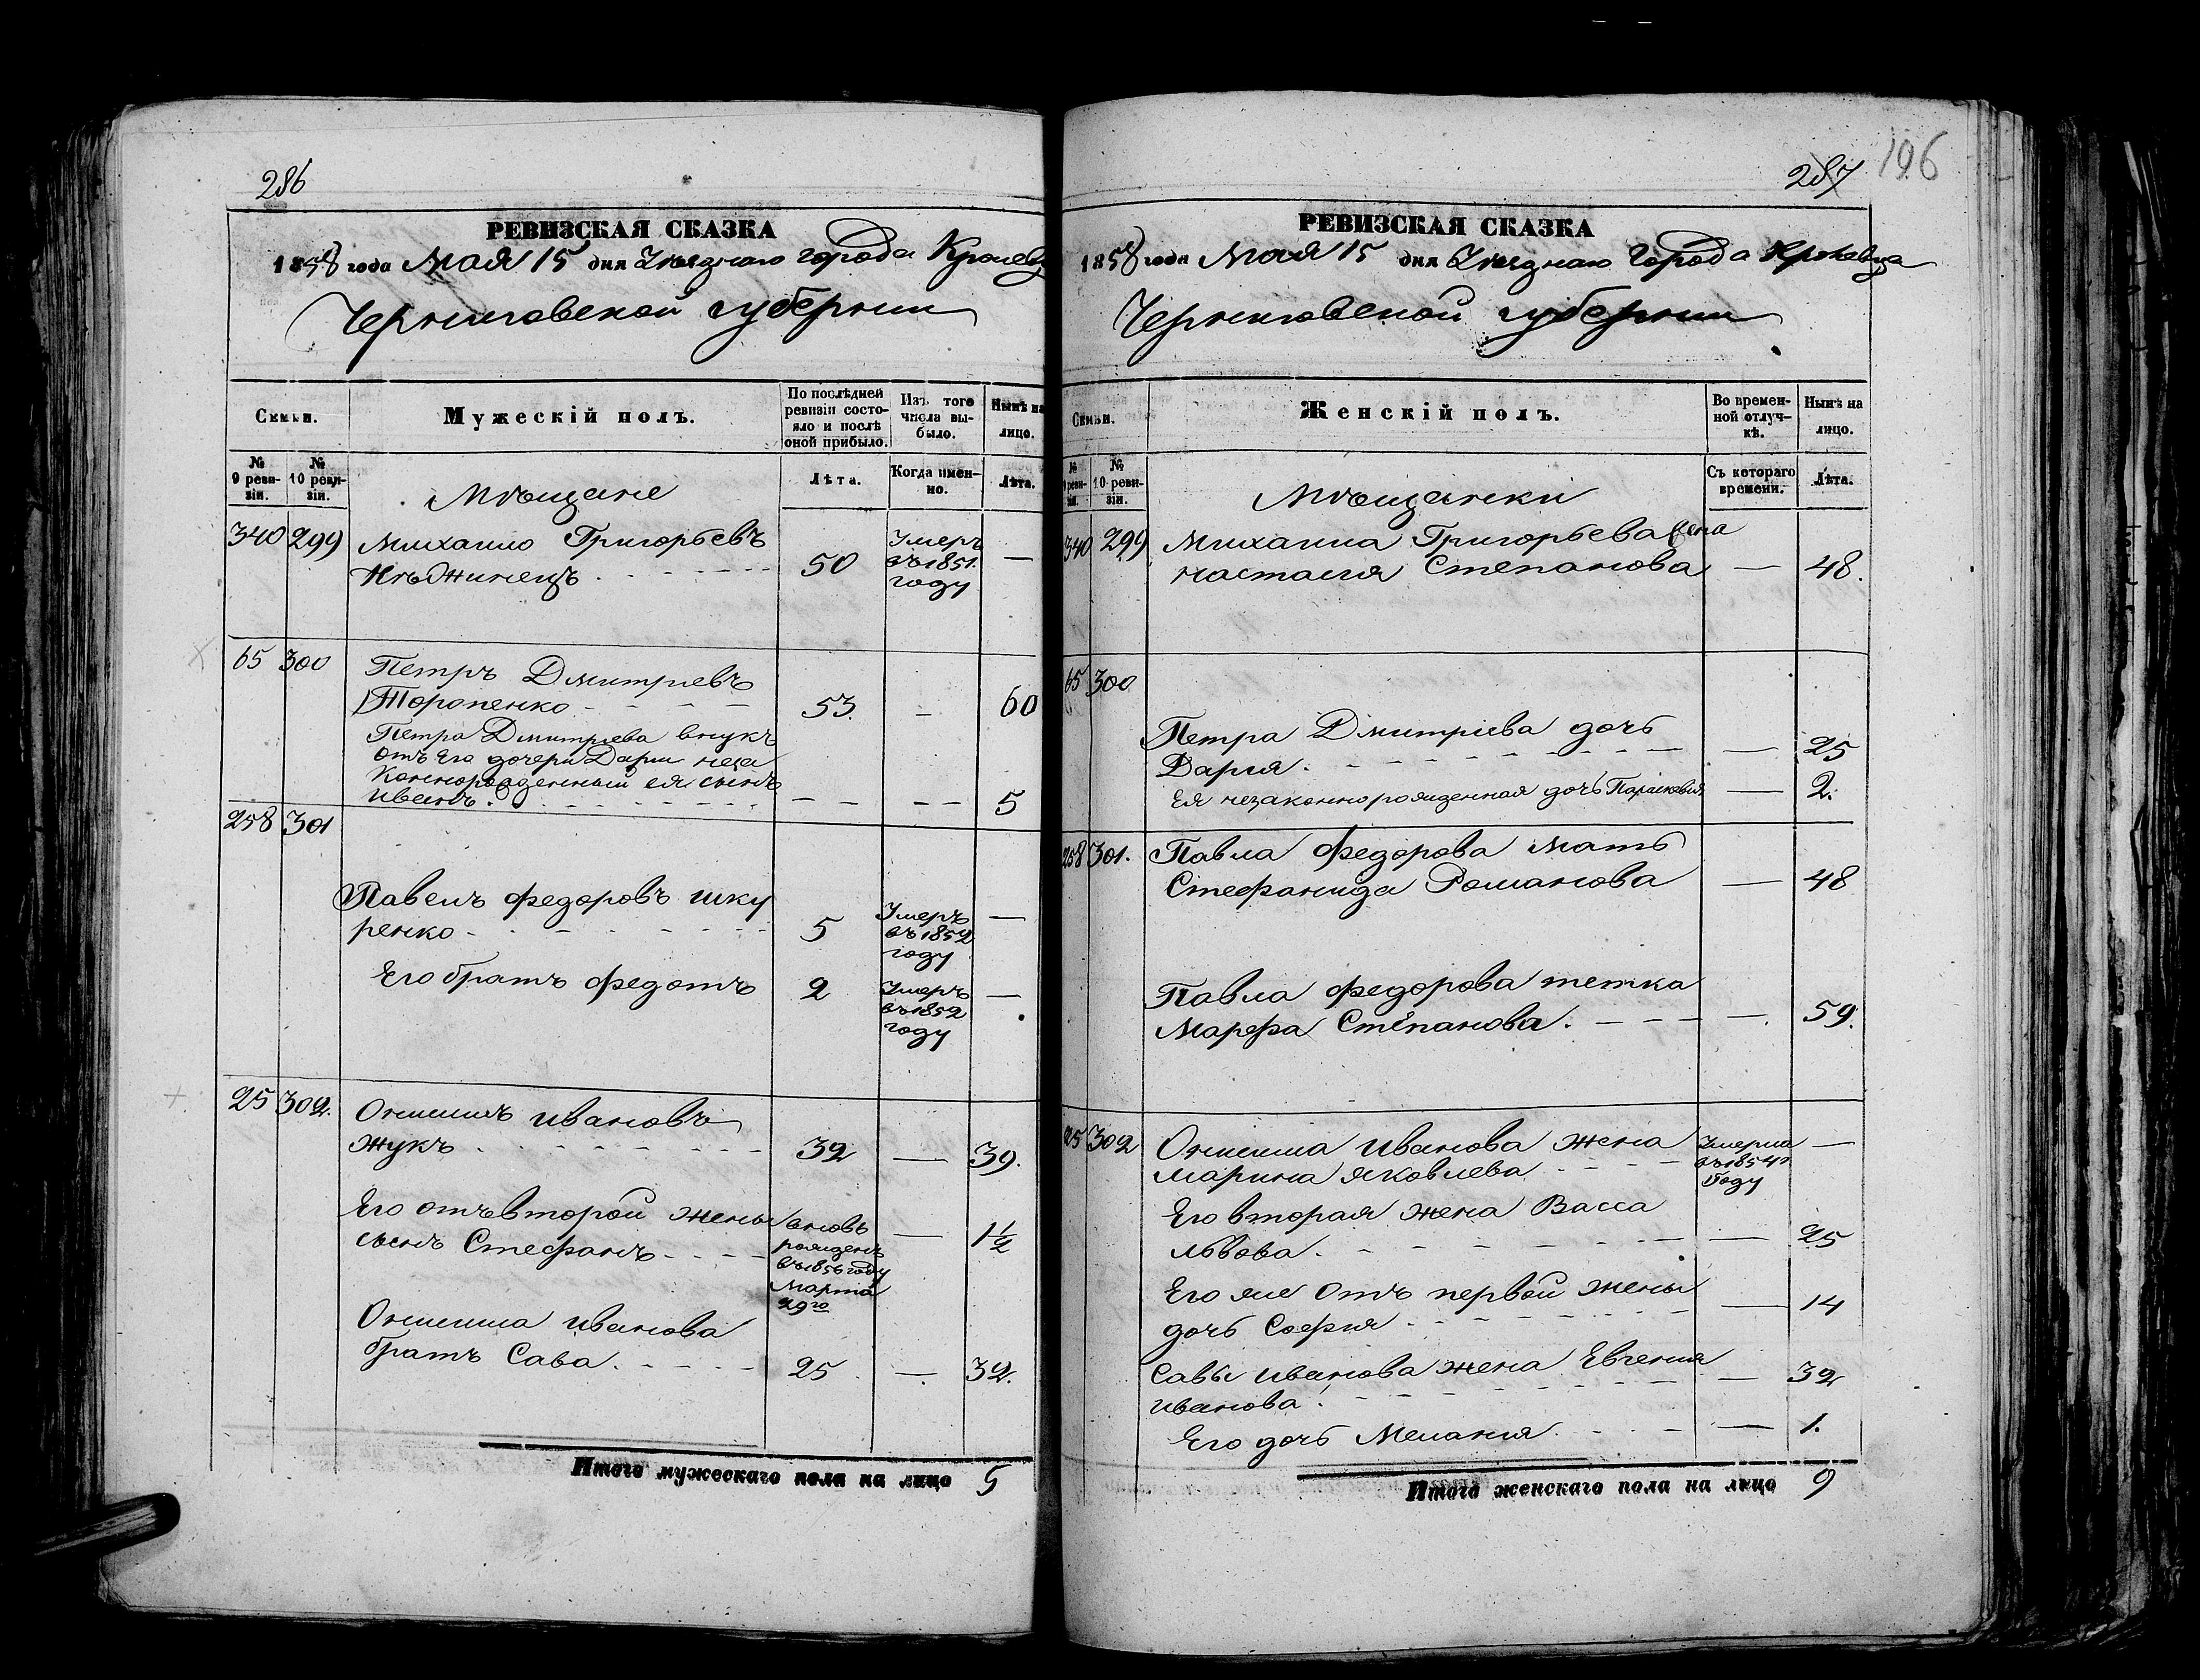 286
РЕВИЗСКАЯ СКАЗКА
1858 года Мая 15 дня Уѣзднаго города Кролевц
Черниговской губернии
Семьи.
Мужескій полъ.
По послѣдней ревизіи состо-
яло и послѣ
оной прибыло.
Изъ того
числа вы-
было.
Нынѣ на
лицо.
№ 9 реви-
зіи.
№ 10 реви-
зіи.
Мѣщане
Лѣта.
Когда имен-
но.
Лѣта.
340 299 Михайло Григорьевъ
Нѣжинецъ 50 Умеръ
въ 1851
году —
65 300 Петръ Дмитріевъ
Торопенко 53. — 60
Петра Дмитріева внукъ
отъ Его дочери Дарьи неза
коннорожденный ея сынъ
Иванъ. — — 5
258 301
Павелъ Федоровъ Шку
ренко 5 Умеръ
въ 1852
году —
Его братъ Федотъ 2 Умеръ
въ 1852
году —
25 302. Онисимъ Ивановъ
Жукъ 32 — 39.
Его отъ второй жены
сынъ Стефанъ вновь
рожденъ
въ 1856 году
Марта
29го — 1½
Онисима Иванова
братъ Сава. 25 — 32.
Итого мужескаго пола на лицо 5
287 196
РЕВИЗСКАЯ СКАЗКА
1858 года Мая 15 дня Уѣзднаго города Кролевца
Черниговской губернии
Семьи.
Женскій полъ.
Во времен-
ной отлуч-
кѣ.
Нынѣ на
лицо.
№ 9 реви-
зіи.
№ 10 реви-
зіи.
Мѣщанки
Съ котораго
времени.
Лѣта.
340 299 Михаила Григорьева жена
Настасія Степанова — 48.
65 300
Петра Дмитріева дочь
Дарія. — 25
Ея незаконнорожденная дочь Параскевія — 2.
258 301. Павла Федорова мать
Стефанида Романова — 48
Павла Федорова тетка
Марфа Степанова. — 59.
25 302 Онисима Иванова жена
Марина Яковлева Умерла
въ 1854м
году —
Его вторая жена Васса
Львова. — 25
Его же отъ первой жены
дочь Софія — 14
Савы Иванова жена Евгенія
Иванова. — 32
Его дочь Меланія — 1.
Итого женскаго пола на лицо 9